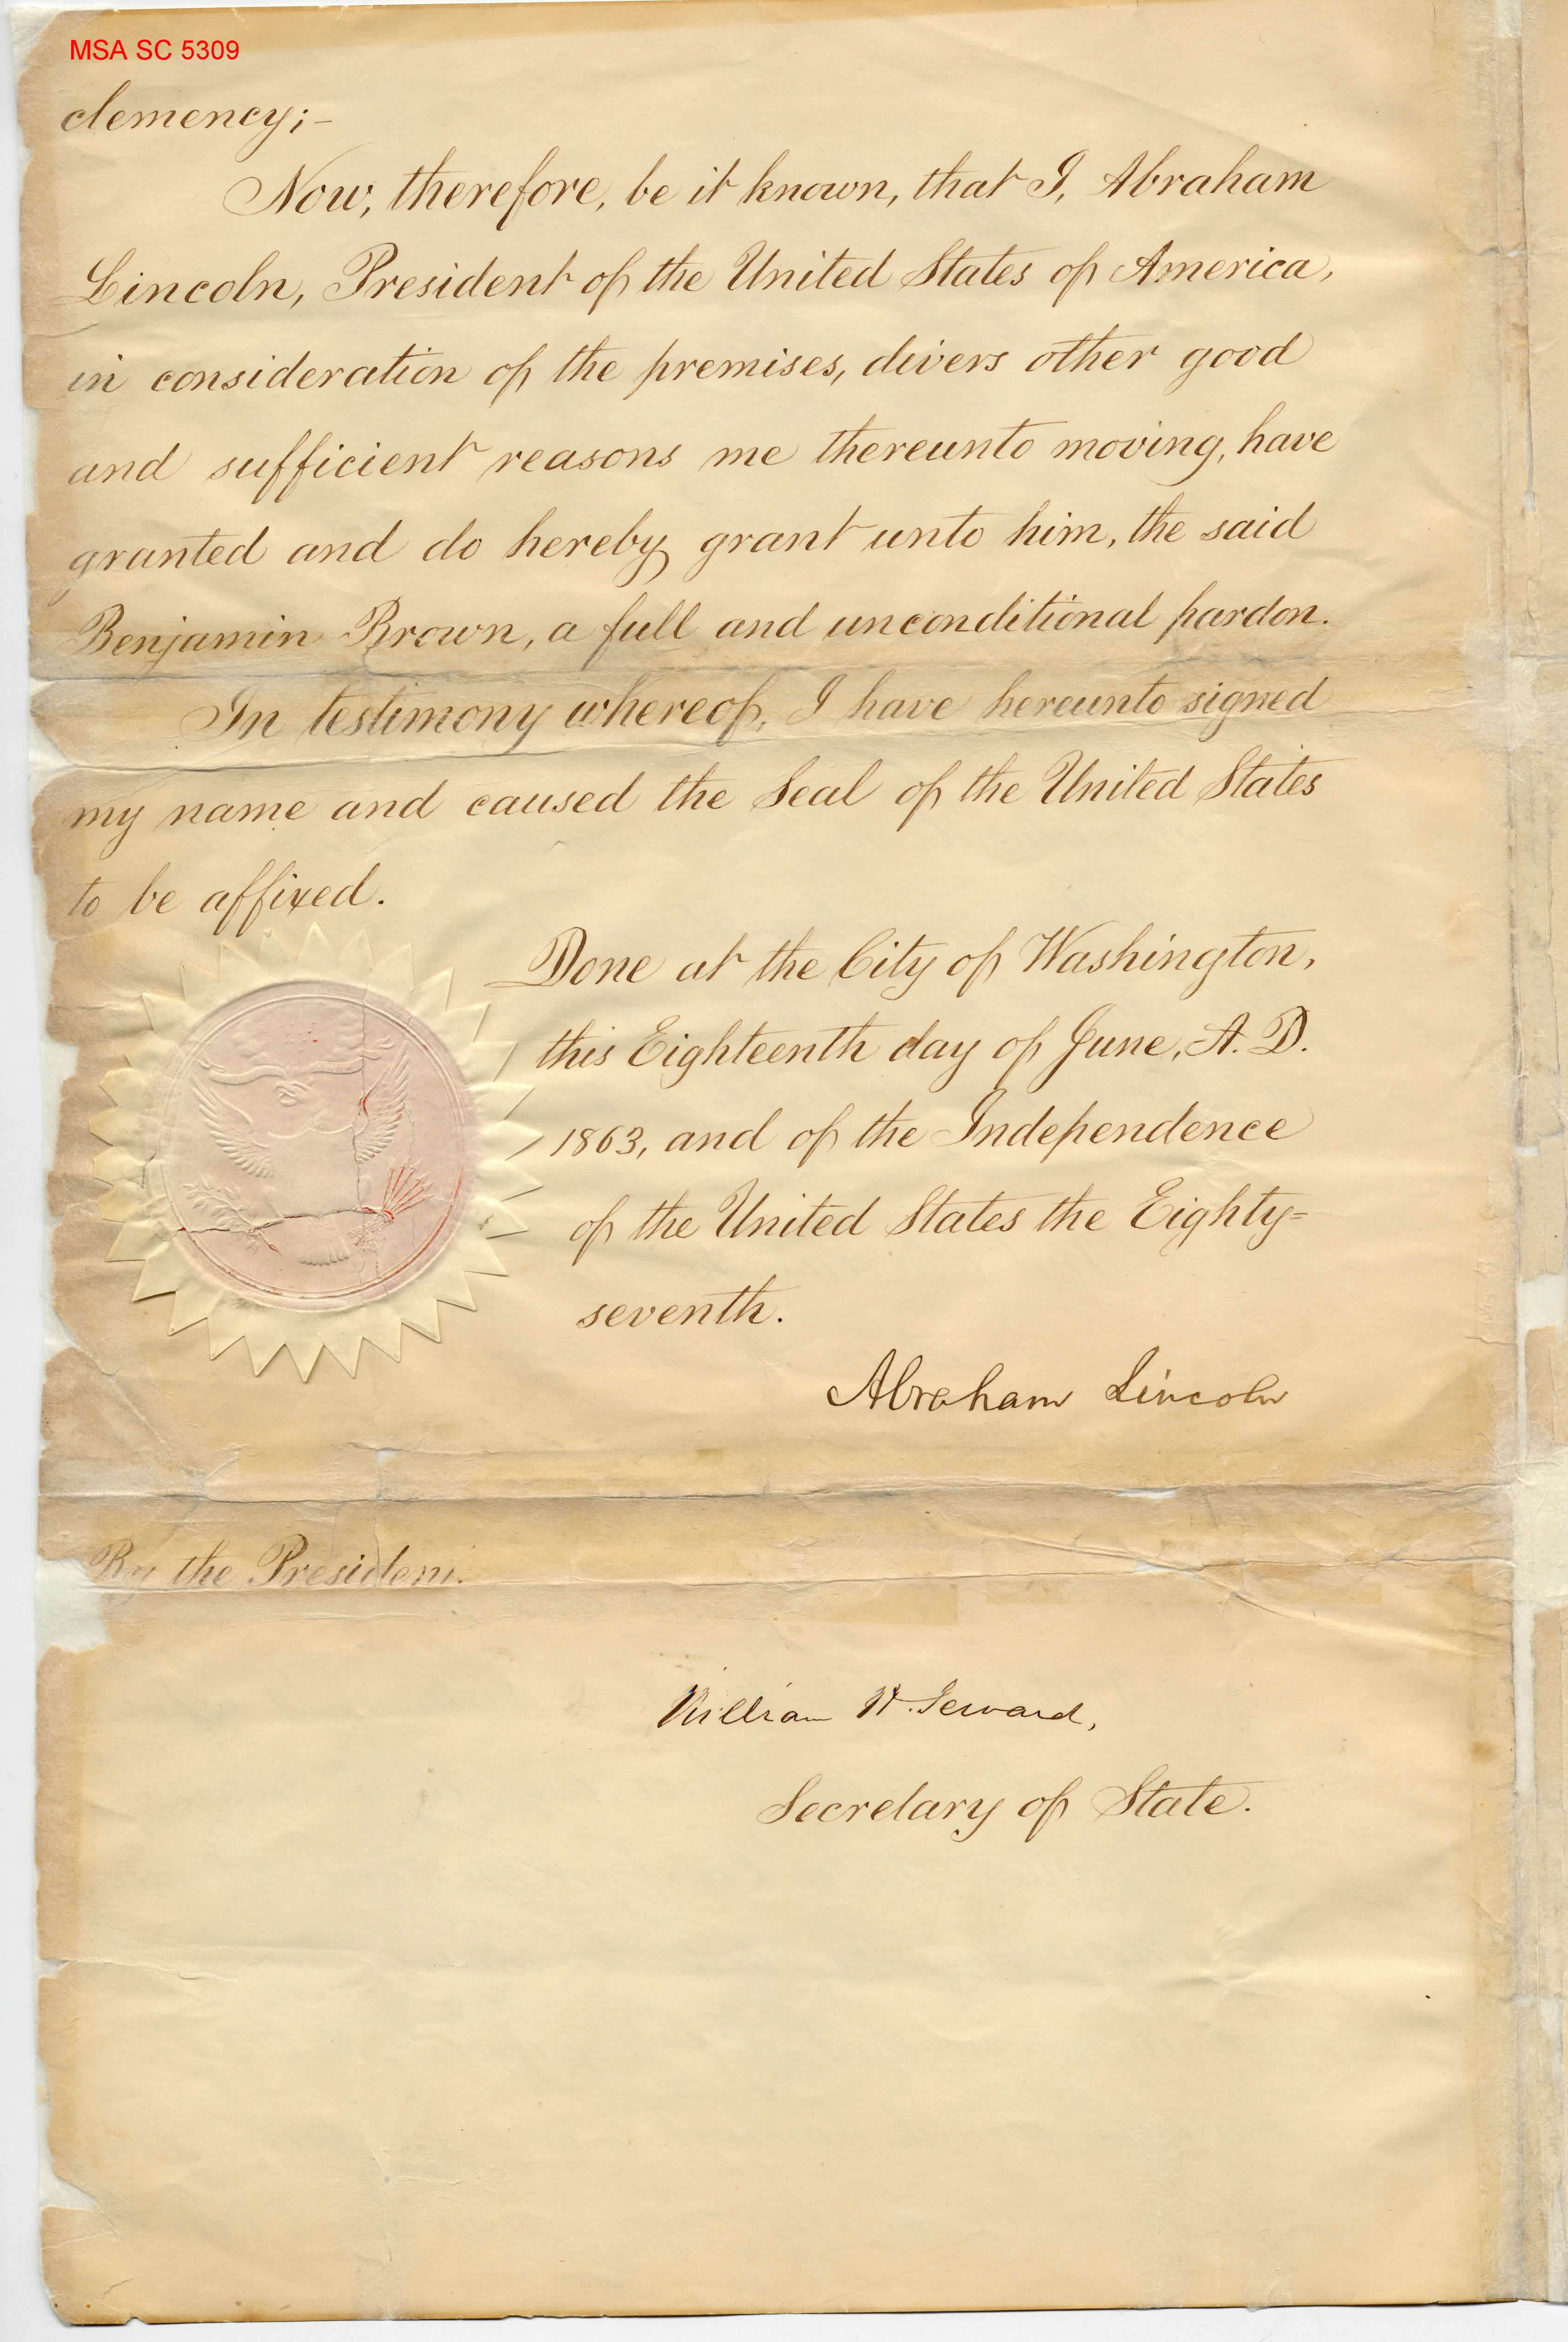 MSA SC 5309
clemency;-
Now, therefore, be it known, that I, Abraham
Lincoln, President of the United States of America,
in consideration of the premises, divers other good
and sufficient reasons me thereunto moving, have
granted and do hereby grant unto him, the said
Benjamin Brown, a full and unconditional pardon.
In testimony whereof, I have hereunto signed
my name and caused the Seal of the United States
to be affixed.
Done at the City of Washington,
this Eighteenth day of June, A. D.
1863, and of the Independence
of the United States the Eighty=
seventh.
Abraham Lincoln
By the President.
William H. Seward,
Secretary of State.